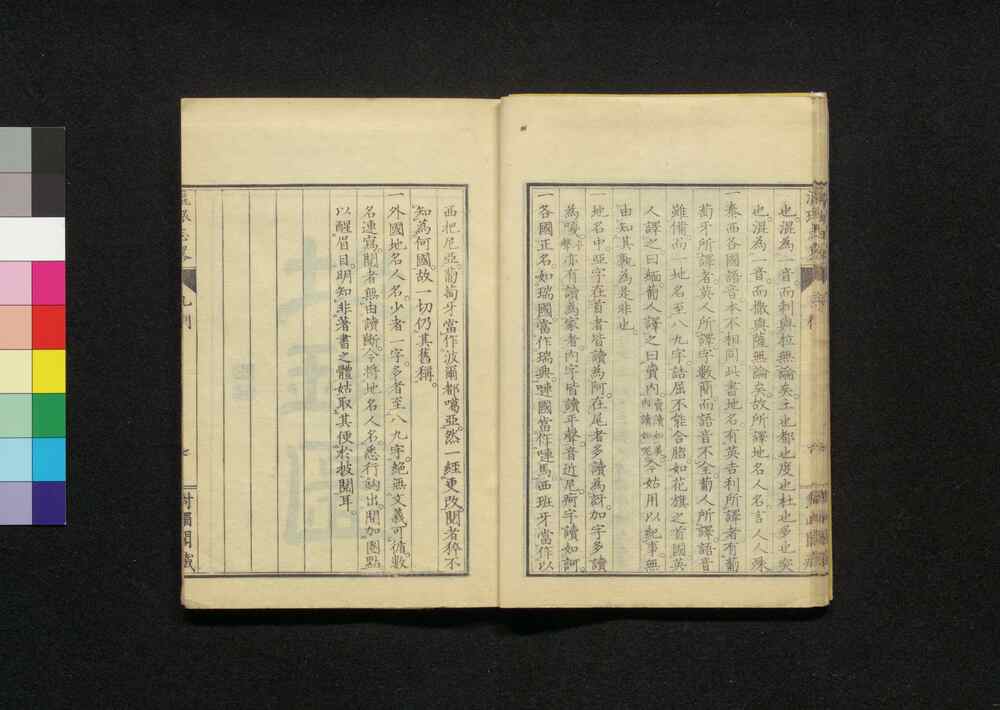 也混為一音而剌與拉無論矣土也都也度也杜也多也突
也混為一音而撒與薩無論矣故所譯地名人名言人人殊
一泰西各國語音本不相同此書地名有英吉利所譯者有葡
萄牙所譯者英人所譯字數簡而語音不全葡人所譯語音
雖備而一地名至八九字詰屈不能合脗如花旗之首國英
人譯之曰緬葡人譯之曰賣內賣讀如美內讀如呢今姑用以紀事無
由知其孰為是非也
一地名中亞字在首者皆讀為阿在尾者多讀為訝加字多讀
為嘎平聲亦有讀為家者內字皆讀平聲音近尼疴字讀如訶
一各國正名如瑞國當作瑞典嗹國當作嗹馬西班牙當作以
西把尼亞葡萄牙當作波爾都噶亞然一經更改閱者猝不
知為何國故一切仍其舊稱
一外國地名人名少者一字多者至八九字絕無文義可循數
名連寫閱者無由讀斷今將地名人名悉行鉤出間加圈點
以醒眉目明知非著書之體姑取其便於披閱耳
瀛環志略
凡例
七
對嵋閣藏